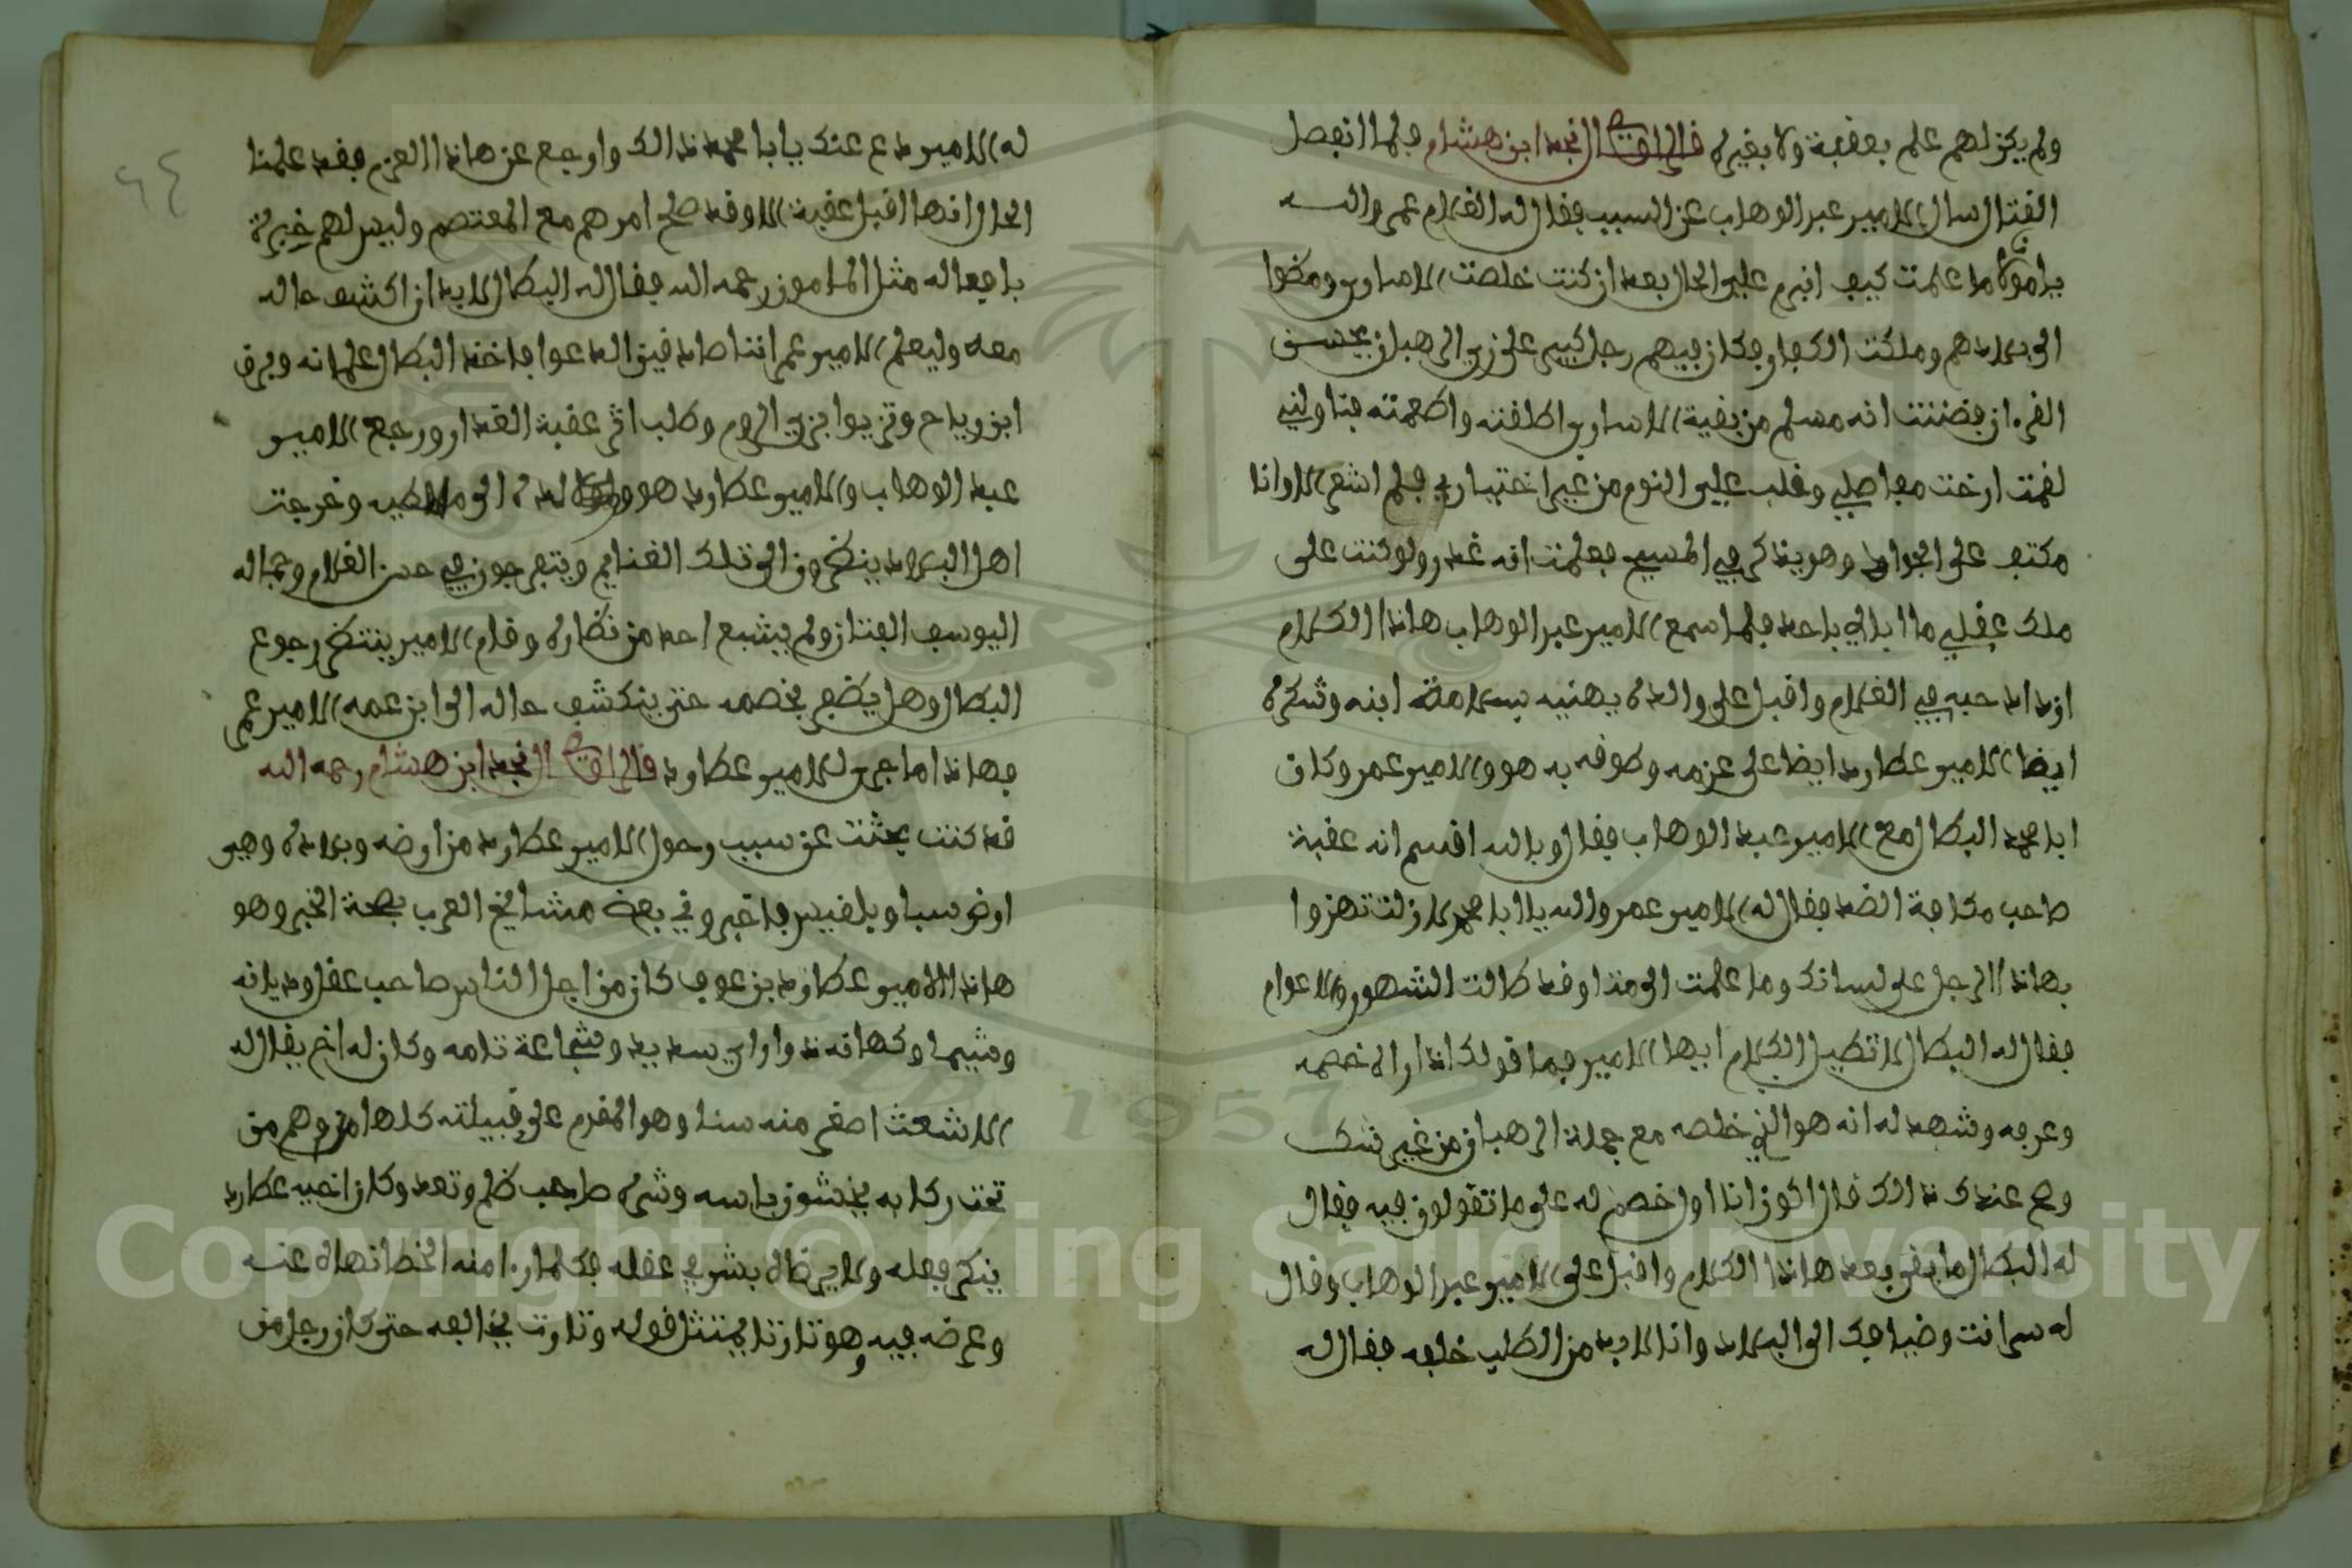 ولم يكن لهم علم بعقبة ولا بغيره قال الراوي النجد ابن هشام فلما انفصل
القتال سال الامير عبد الوهاب عن السبب فقال له الغلام عمر والله
يا مولاي ما علمت كيف انبرم علي الحال بعد ان كنت خلصت الاساري ومضوا
الى بلادهم وملكت الكفار وكان فيهم رجل كبير على زي الرهبان يحسن
القرءان فظننت انه مسلم من بقية الاساري اطلقته واطعمته فناولني
لقمت ارخت مفاصلي وغلب علي النوم من غير اختياري فلم اشعر الا وانا
مكتف على الجواد وهو يذكر في المسيح فعلمت انه غدر ولو كنت على
ملك عقلي ما ابالي باحد فلما سمع الامير عبد الوهاب هاذا الكلام
ازداد حبه في الغلام واقبل على والده يهنيه بسلامة ابنه وشكره
ايضا الامير عطارد ايضا على عزمه وطوفه به هو والامير عمر وكان
ابا محمد البطال مع الامير عبد الوهاب فقال وبالله اقسم انه عقبة
صاحب مكافة الضد فقال له الامير عمر والله يا ابا محمد لازلت تهزوا
بهاذا الرجل على لسانك وما علمت الى متا وقد طالت الشهور والاعوام
فقال له البطال لا تطيل الكلام ايها الامير فما قولك اذا راه خصمه
وعرفه وشهد له انه هو الذي خلصه مع جملة الرهبان من غير شك
وصح عندك ذالك قال اكون انا اول خصم له على ما تقولون فيه فقال
له البطال ما بقي بعد هاذا الكلام واقبل على الامير عبد الوهاب وقال
له سر انت وضيافك الى البلاد وانا لابد من الطلب خلفه فقال له
٦٤
له الامير دع عنك يابا محمد ذالك وارجع عن هاذا العزم فقد علمنا
الحال انها اقبل عقبة الا وقد صلح امرهم مع المعتصم وليس لهم خبرة
بافعاله مثل المامون رحمه الله فقال له البطال لابد ان اكشف حاله
معه وليعلم الامير عمر اننا صادقين الدعوا فاخذ البطال غلمانه وبرق
ابن رياح وتزيوا بزي الروم وطلب اثر عقبة الغدار ورجع الامير
عبد الوهاب والامير عطارد هو وولده الى ملاطيه وخرجت
اهل البلاد ينظرون الى تلك الغنايم ويتفرجون في حسن الغلام وجماله
اليوسف الفتان ولم يشبع احد من نظاره وقام الامير ينتظر رجوع
البطال وهل يظفر بخصمه حتى ينكشف حاله الى ابن عمه الامير عمر
فهاذا ما جرى للامير عطارد قال الراوي النجد ابن هشام رحمه الله
قد كنت بحثت عن سبب رحول الامير عطارد من ارضه وبلاده وهي
ارض سبا وبلقيس فاخبروني بعض مشايخ العرب بصحة الخبر وهو
هاذا الامير عطارد بن عوف كان من اجل الناس صاحب عقل وديانه
وشيما وكهانه ذوا راي سديد وشجاعة تامه وكان له اخ يقال له
الاشعث اصغر منه سنا وهو المقدم على قبيلته كلها وهم من
تحت ركابه يخشون باسه وشره صاحب ظلم وتعد وكان اخيه عطارد
ينكر فعله ولا يرضاه بشر في عقله فكلما را منه الخطا نهاه عنه
وعرضه فيه وهو تارتا يمتثل قوله وتارت يخالفه حتى كان رجل من